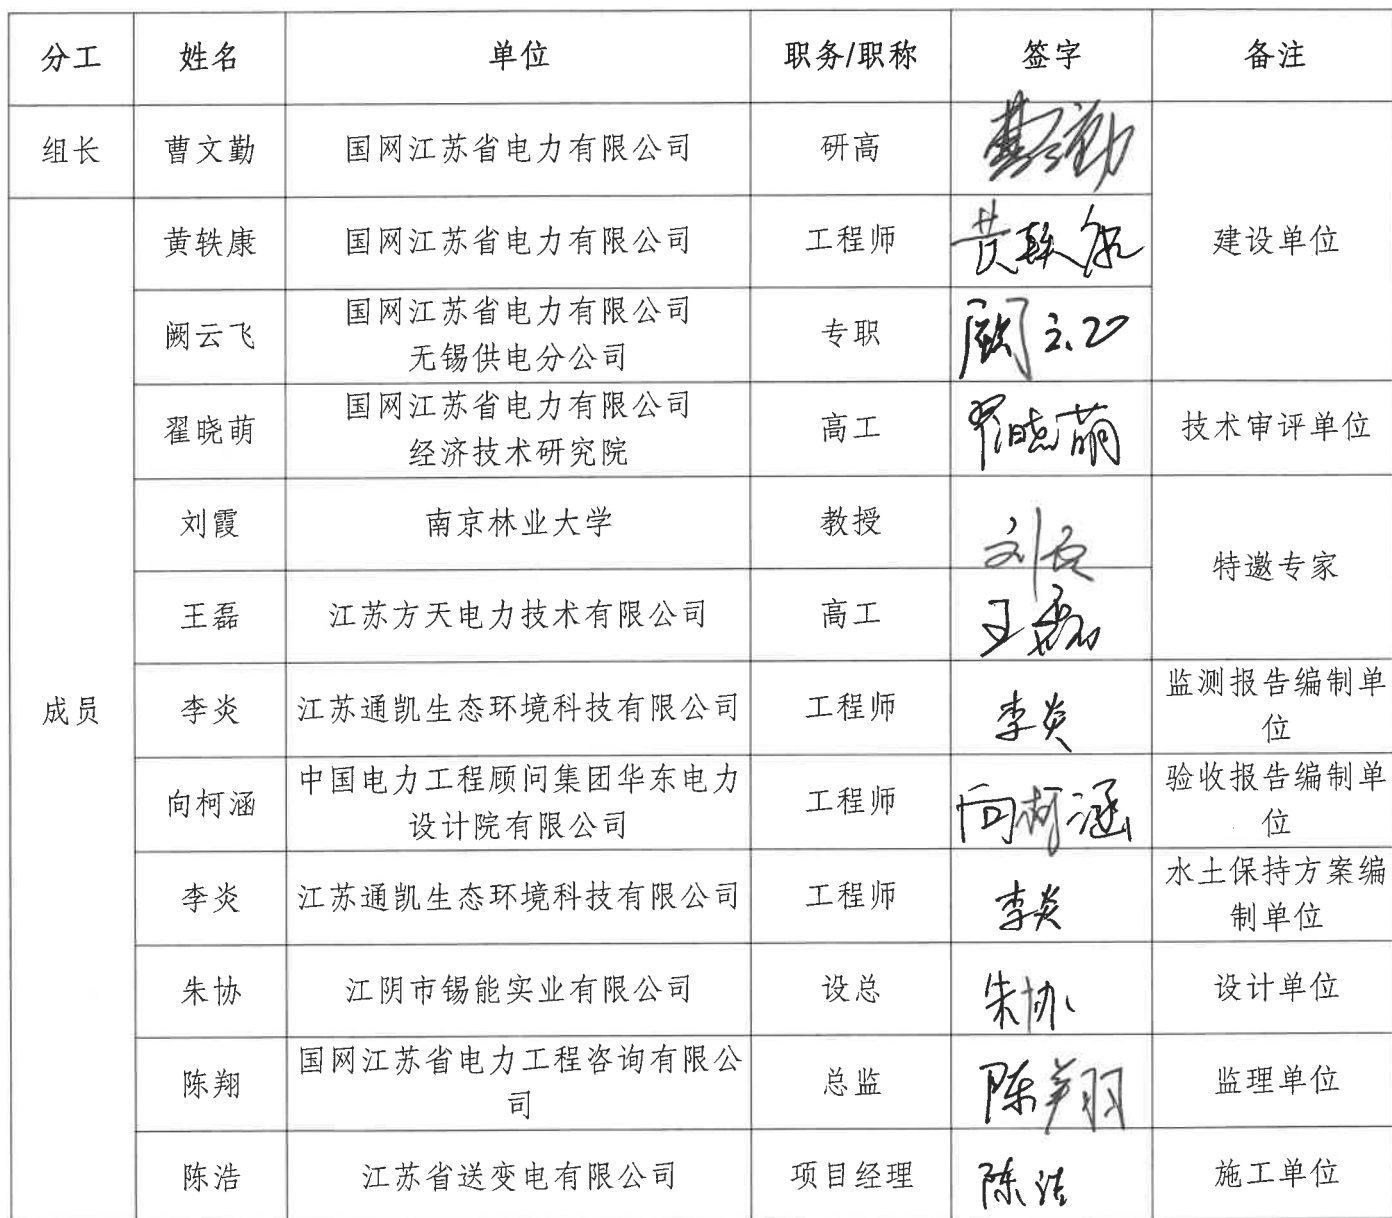 分工 姓名 单位 职务/职称 签字 备注
组长 曹文勤 国网江苏省电力有限公司 研高 曹文勤
黄轶康 国网江苏省电力有限公司 工程师 黄轶康 建设单位
阙云飞 国网江苏省电力有限公司 专职 阙云飞
无锡供电分公司
翟晓萌 国网江苏省电力有限公司 高工 翟晓萌 技术审评单位
经济技术研究院
刘霞 南京林业大学 教授 刘霞
特邀专家
王磊 江苏方天电力技术有限公司 高工 王磊
成员 李炎 江苏通凯生态环境科技有限公司 工程师 李炎 监测报告编制单
位
向柯涵 中国电力工程顾问集团华东电力 工程师 向柯涵 验收报告编制单
设计院有限公司 位
李炎 江苏通凯生态环境科技有限公司 工程师 李炎 水土保持方案编
制单位
朱协 江阴市锡能实业有限公司 设总 朱协 设计单位
陈翔 国网江苏省电力工程咨询有限公 总监 陈翔 监理单位
司
陈浩 江苏省送变电有限公司 项目经理 陈浩 施工单位